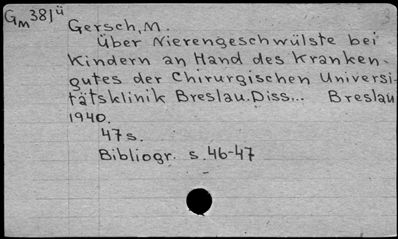 Gm381ü
Gersch, M.
Über Nierengeschwülste bei
Kindern an Hand des Kranken-
gutes der Chirurgischen Universi-
tätsklinik Breslau. Diss... Breslau
1940.
47s.
Bibliogr. s.46-47